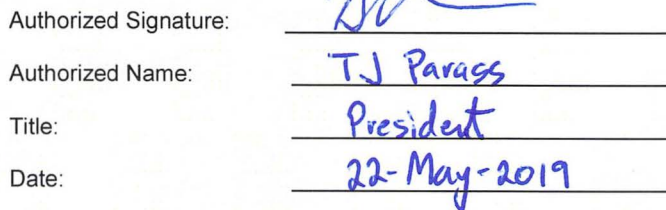 Authorized Signature:
Authorized Name: TJ Parass
Title: President
Date: 22-May-2019